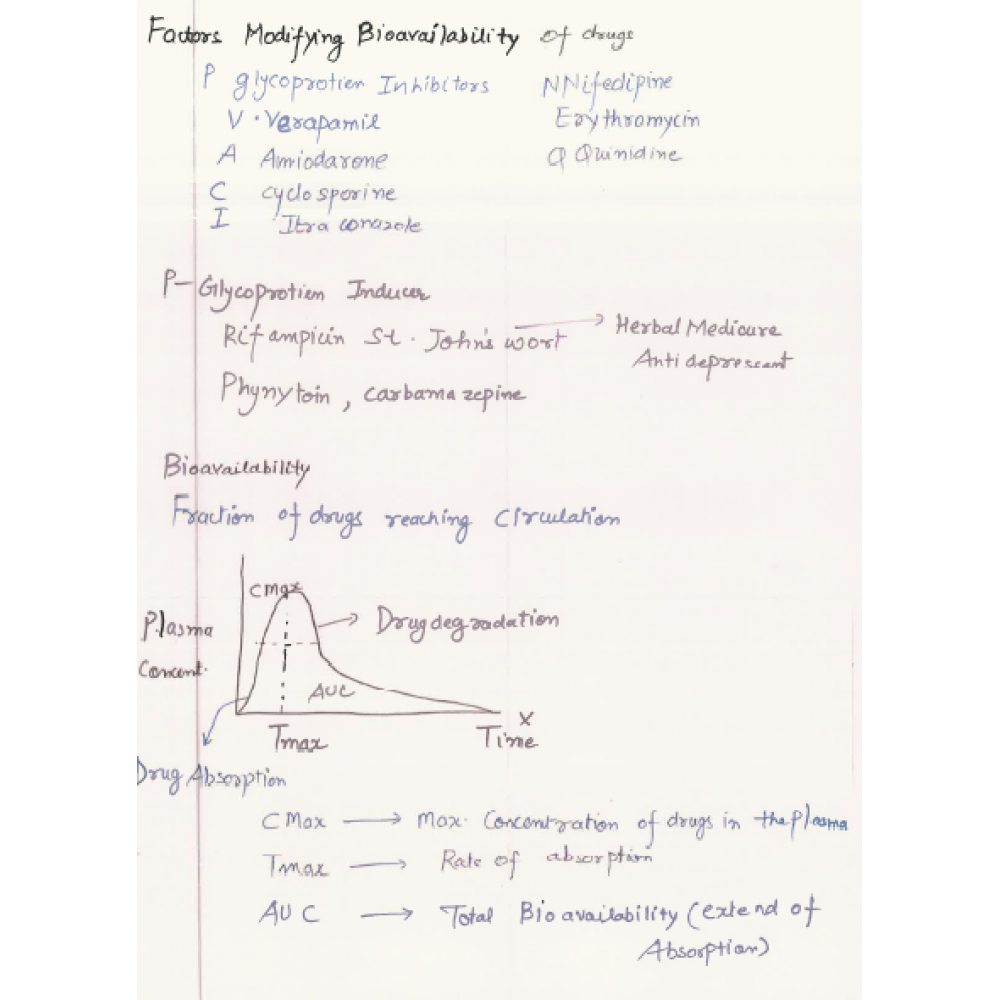 Factors Modifying Bioavailability of drugs
P glycoprotien Inhibitors
V . Verapamil
A Amiodarone
C cyclosporine
I Itra conazole
N Nifedipine
Erythromycin
Q Quinidine
P- Glycoprotien Inducer
Rifampicin St. John's wort → Herbal Medicure
Anti depressant
Phynytoin, carbamazepine
Bioavailability
Fraction of drugs reaching Circulation
CMax
Plasma
Concent.
Drug degradation
AUC
Tmax
X
Time
Drug Absorption
CMax → Max. Concentration of drugs in the Plasma
Tmax → Rate of absorption
AUC → Total Bioavailability (extend of
Absorption)